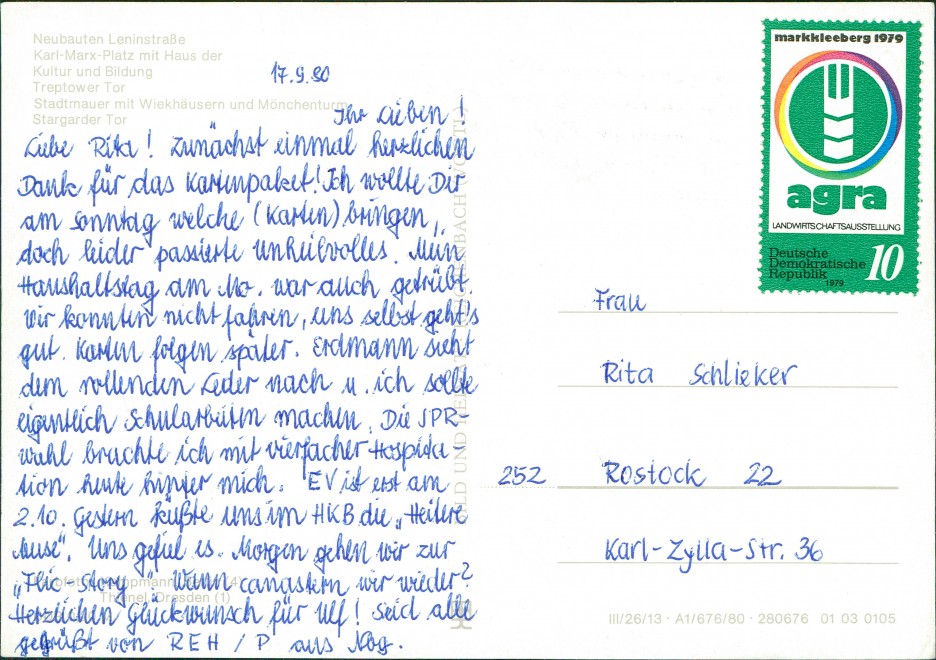 Neubauten Leninstraße
Karl-Marx-Platz mit Haus der
Kultur und Bildung
Treptower Tor
Stadtmauer mit Wiekhäusern und Mönchenturm
Stargarder Tor
17.9.80
Ihr Lieben!
Liebe Rita! Zunächst einmal herzlichen
Dank für das Kartenpaket! Ich wollte Dir
am Sonntag welche (Karten) bringen,
doch leider passierte Unheilvolles. Mein
Haushaltstag am Mo. war auch getrübt.
Wir konnten nicht fahren, uns selbst geht's
gut. Karten folgen später. Erdmann sieht
dem rollenden Leder nach u. ich sollte
eigentlich Schularbeiten machen. Die SPR-
wahl brachte ich mit vierfacher Hospita-
tion heute hinter mich. EV ist erst am
2.10. Gestern küßte uns im HKB die „Heitere
Muse". Uns gefiel es. Morgen gehen wir zur
„Flic-Story". Wann canastern wir wieder?
Herzlichen Glückwunsch für Ulf! Seid alle
gegrüßt von REH / P aus Nbg.
Thienel, Dresden (1)
BILD UND HEIMAT REICHENBACH (VOGTL)
markkleeberg 1979
agra
LANDWIRTSCHAFTSAUSSTELLUNG
Deutsche
Demokratische
Republik
10
1979
Frau
Rita Schlieker
252 Rostock 22
Karl-Zylla-Str. 36
III/26/13 · A1/676/80 · 280676 01 03 0105